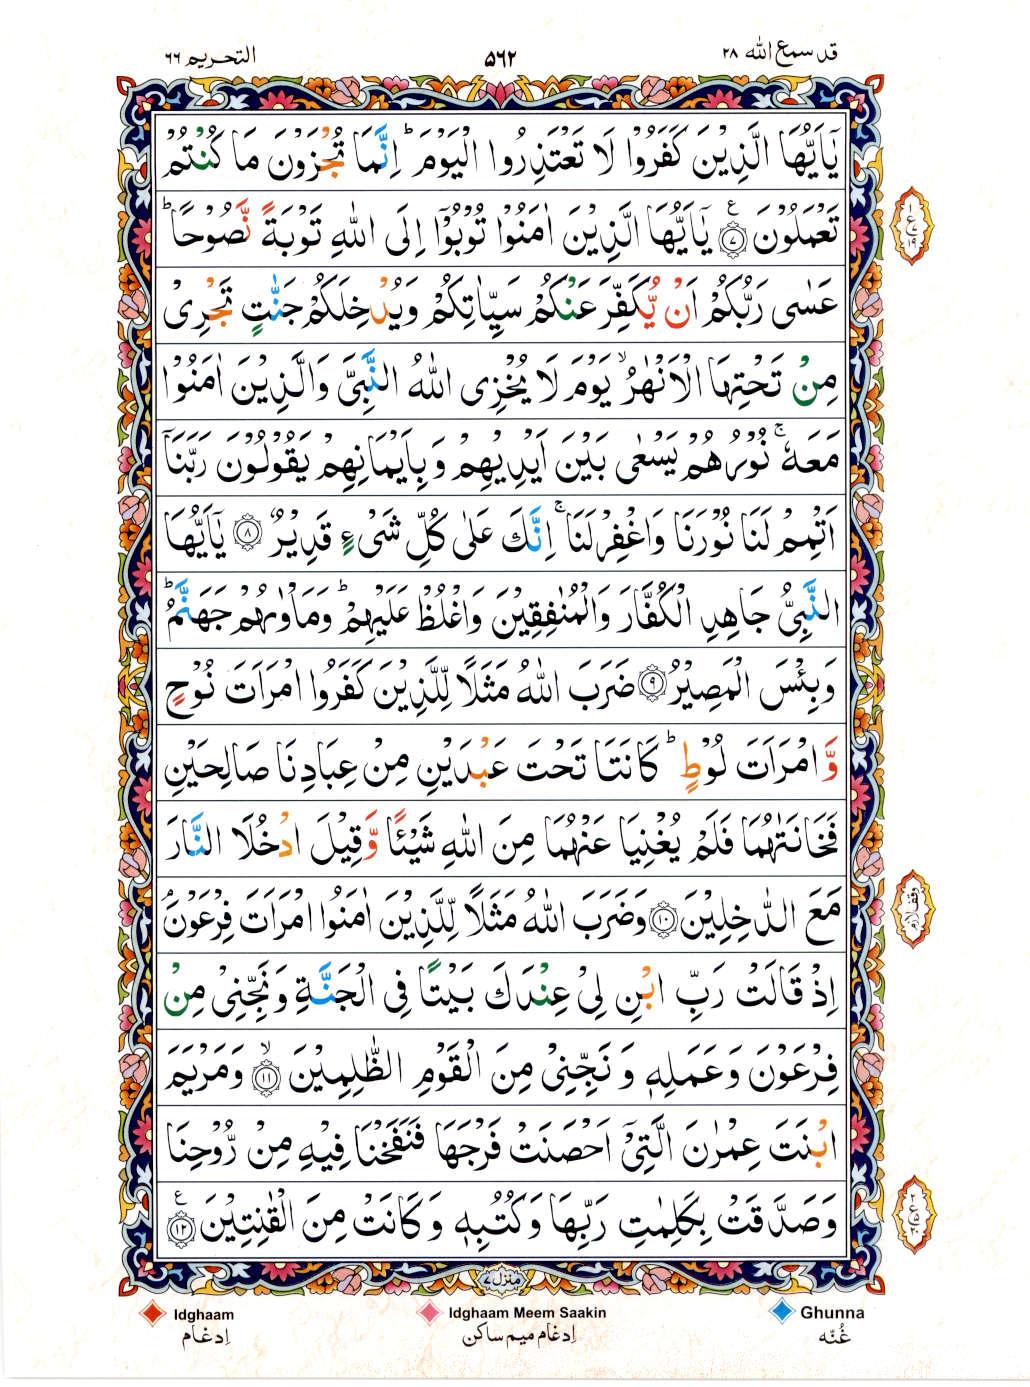 قد سمع الله ٢٨
٥٦٢
التحريم ٦٦
يٰٓاَيُّهَا الَّذِيْنَ كَفَرُوْا لَا تَعْتَذِرُوا الْيَوْمَ ؕ اِنَّمَا تُجْزَوْنَ مَا كُنْتُمْ
تَعْمَلُوْنَ ࣖ ﴿٧﴾ يٰٓاَيُّهَا الَّذِيْنَ اٰمَنُوْا تُوْبُوْٓا اِلَى اللّٰهِ تَوْبَةً نَّصُوْحًا ؕ
عَسٰى رَبُّكُمْ اَنْ يُّكَفِّرَ عَنْكُمْ سَيِّاٰتِكُمْ وَيُدْخِلَكُمْ جَنّٰتٍ تَجْرِىْ
مِنْ تَحْتِهَا الْاَنْهٰرُ ۙ يَوْمَ لَا يُخْزِى اللّٰهُ النَّبِىَّ وَالَّذِيْنَ اٰمَنُوْا
مَعَهٗ ۚ نُوْرُهُمْ يَسْعٰى بَيْنَ اَيْدِيْهِمْ وَبِاَيْمَانِهِمْ يَقُوْلُوْنَ رَبَّنَاۤ
اَتْمِمْ لَنَا نُوْرَنَا وَاغْفِرْ لَنَا ۚ اِنَّكَ عَلٰى كُلِّ شَىْءٍ قَدِيْرٌ ﴿٨﴾ يٰٓاَيُّهَا
النَّبِىُّ جَاهِدِ الْكُفَّارَ وَالْمُنٰفِقِيْنَ وَاغْلُظْ عَلَيْهِمْ ؕ وَمَاْوٰىهُمْ جَهَنَّمُ ؕ
وَبِئْسَ الْمَصِيْرُ ﴿٩﴾ ضَرَبَ اللّٰهُ مَثَلًا لِّلَّذِيْنَ كَفَرُوا امْرَاَتَ نُوْحٍ
وَّ امْرَاَتَ لُوْطٍ ؕ كَانَتَا تَحْتَ عَبْدَيْنِ مِنْ عِبَادِنَا صَالِحَيْنِ
فَخَانَتٰهُمَا فَلَمْ يُغْنِيَا عَنْهُمَا مِنَ اللّٰهِ شَيْـًٔا وَّقِيْلَ ادْخُلَا النَّارَ
مَعَ الدّٰخِلِيْنَ ﴿١٠﴾ وَضَرَبَ اللّٰهُ مَثَلًا لِّلَّذِيْنَ اٰمَنُوا امْرَاَتَ فِرْعَوْنَ ۘ
اِذْ قَالَتْ رَبِّ ابْنِ لِىْ عِنْدَكَ بَيْتًا فِى الْجَنَّةِ وَنَجِّنِىْ مِنْ
فِرْعَوْنَ وَعَمَلِهٖ وَنَجِّنِىْ مِنَ الْقَوْمِ الظّٰلِمِيْنَ ۙ ﴿١١﴾ وَمَرْيَمَ
ابْنَتَ عِمْرٰنَ الَّتِىْٓ اَحْصَنَتْ فَرْجَهَا فَنَفَخْنَا فِيْهِ مِنْ رُّوْحِنَا
وَصَدَّقَتْ بِكَلِمٰتِ رَبِّهَا وَكُتُبِهٖ وَكَانَتْ مِنَ الْقٰنِتِيْنَ ࣖ ﴿١٢﴾
وقف لازم
منزل ٧
Idghaam
اِدغام
Idghaam Meem Saakin
اِدغام ميم ساكن
Ghunna
غُنّه